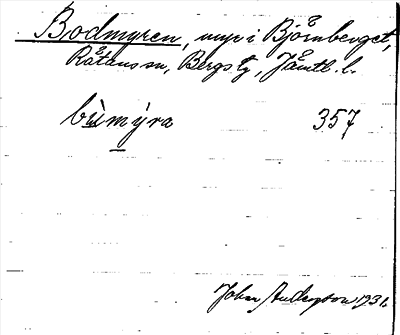 Bodmyren, myr i Björnberget,
Rätans sn, Bergs tg, Jämtl. l.
bùmýra 357
Johan Anderson 1931.